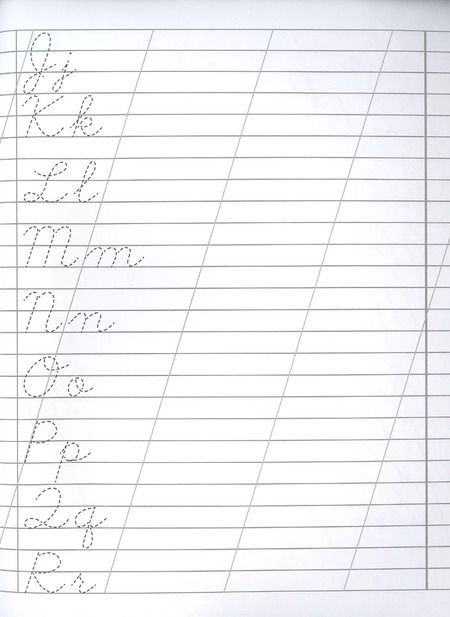 Jj
Kk
Ll
Mm
Nn
Oo
Pp
Qq
Rr